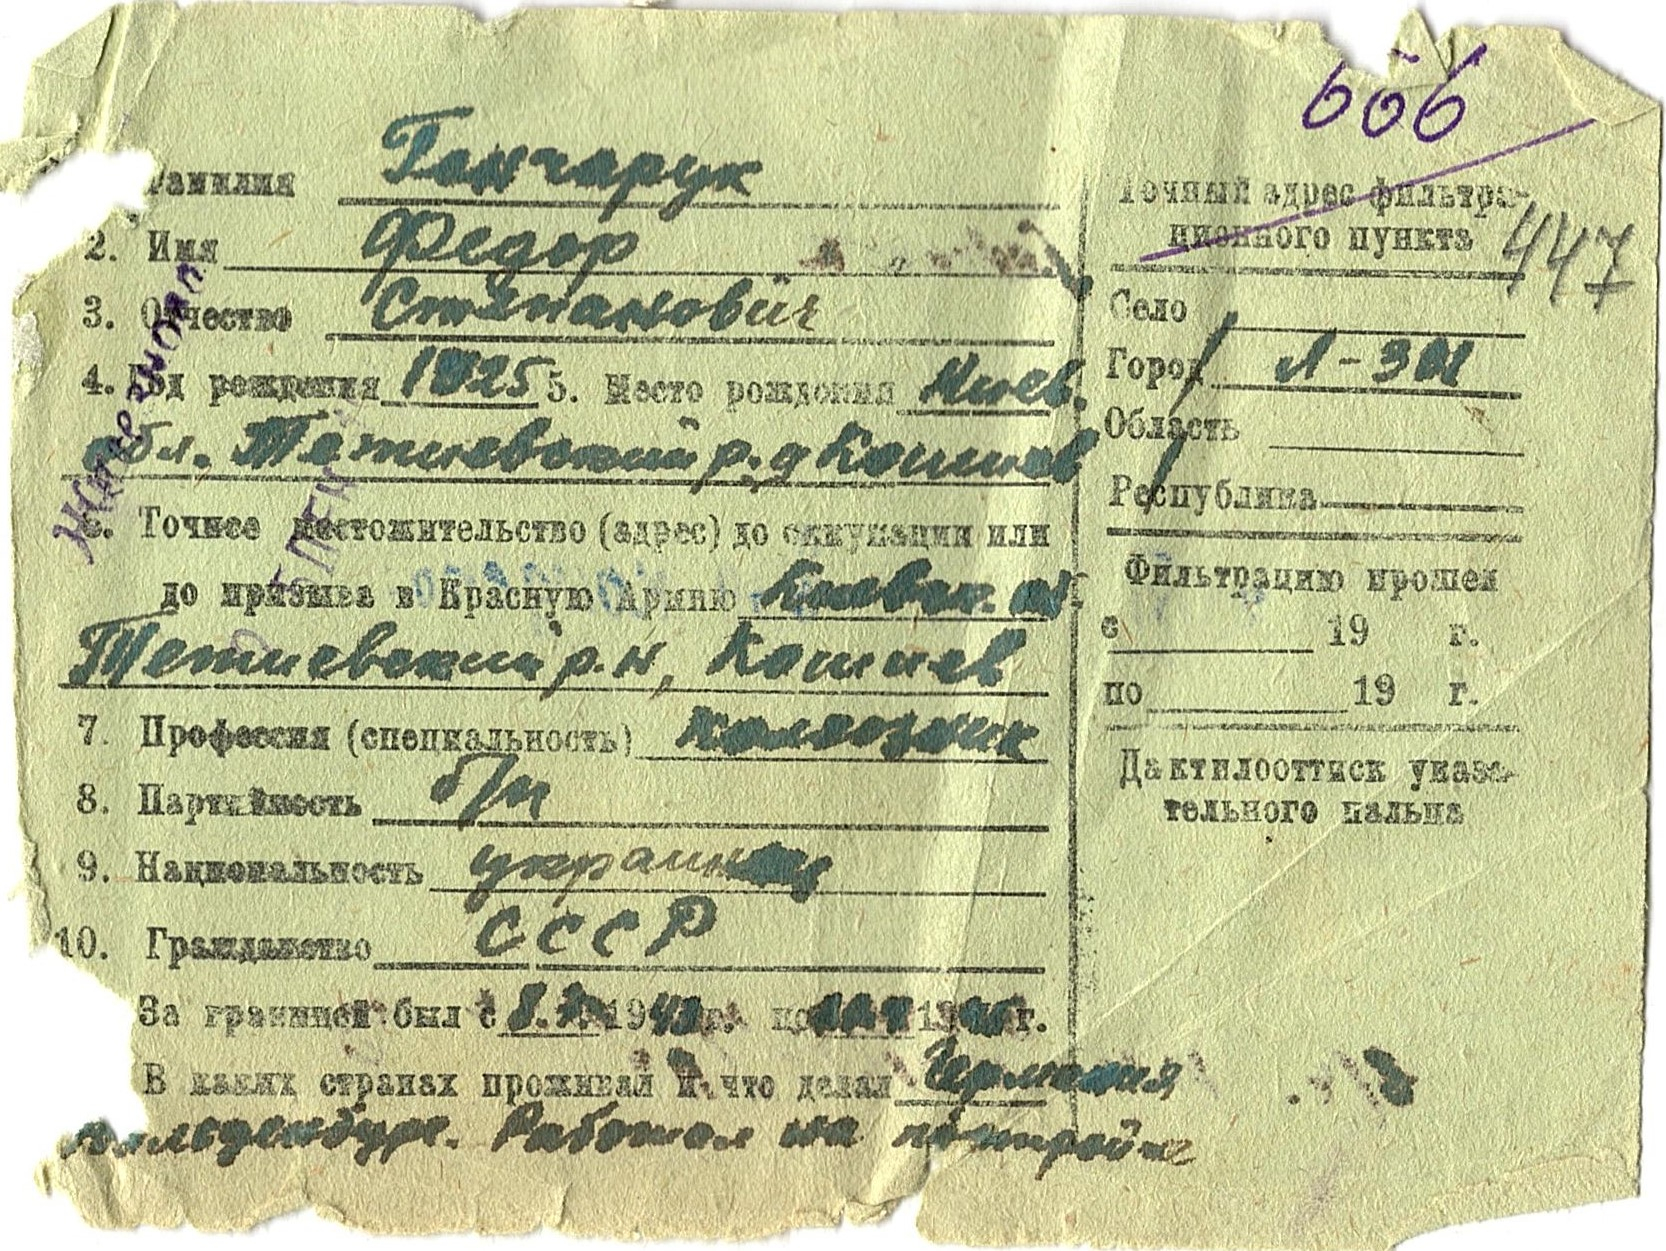 606
447
Фамилия Гончарук
2. Имя Федор
3. Отчество Степанович
4. Год рождения 1925 5. Место рождения Киев.
обл. Тетиевский р. д Кошиев
6. Точное местожительство (адрес) до оккупации или
до призыва в Красную Армию Киевск.
Тетиевский р.н, Кошиев
7. Профессия (специальность) колхозник
8. Партийность б/п
9. Национальность украинец
10. Гражданство СССР
За границей был с 8. 1943 г. по 1945 г.
В каких странах проживал и что делал Германия,
Работал на постройке
Точный адрес фильтра-
ционного пункта
Село
Город Л-301
Область
Республика
Фильтрацию прошел
с 19 г.
по 19 г.
Дактилооттиск указа-
тельного пальца